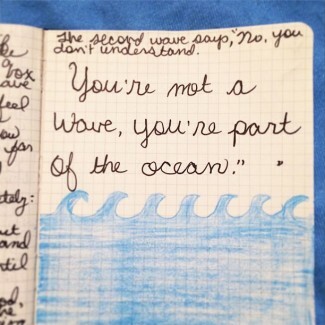 The second wave says, "No, you
don't understand.
You're not a
Wave, you're part
Of the ocean." "
feel
until